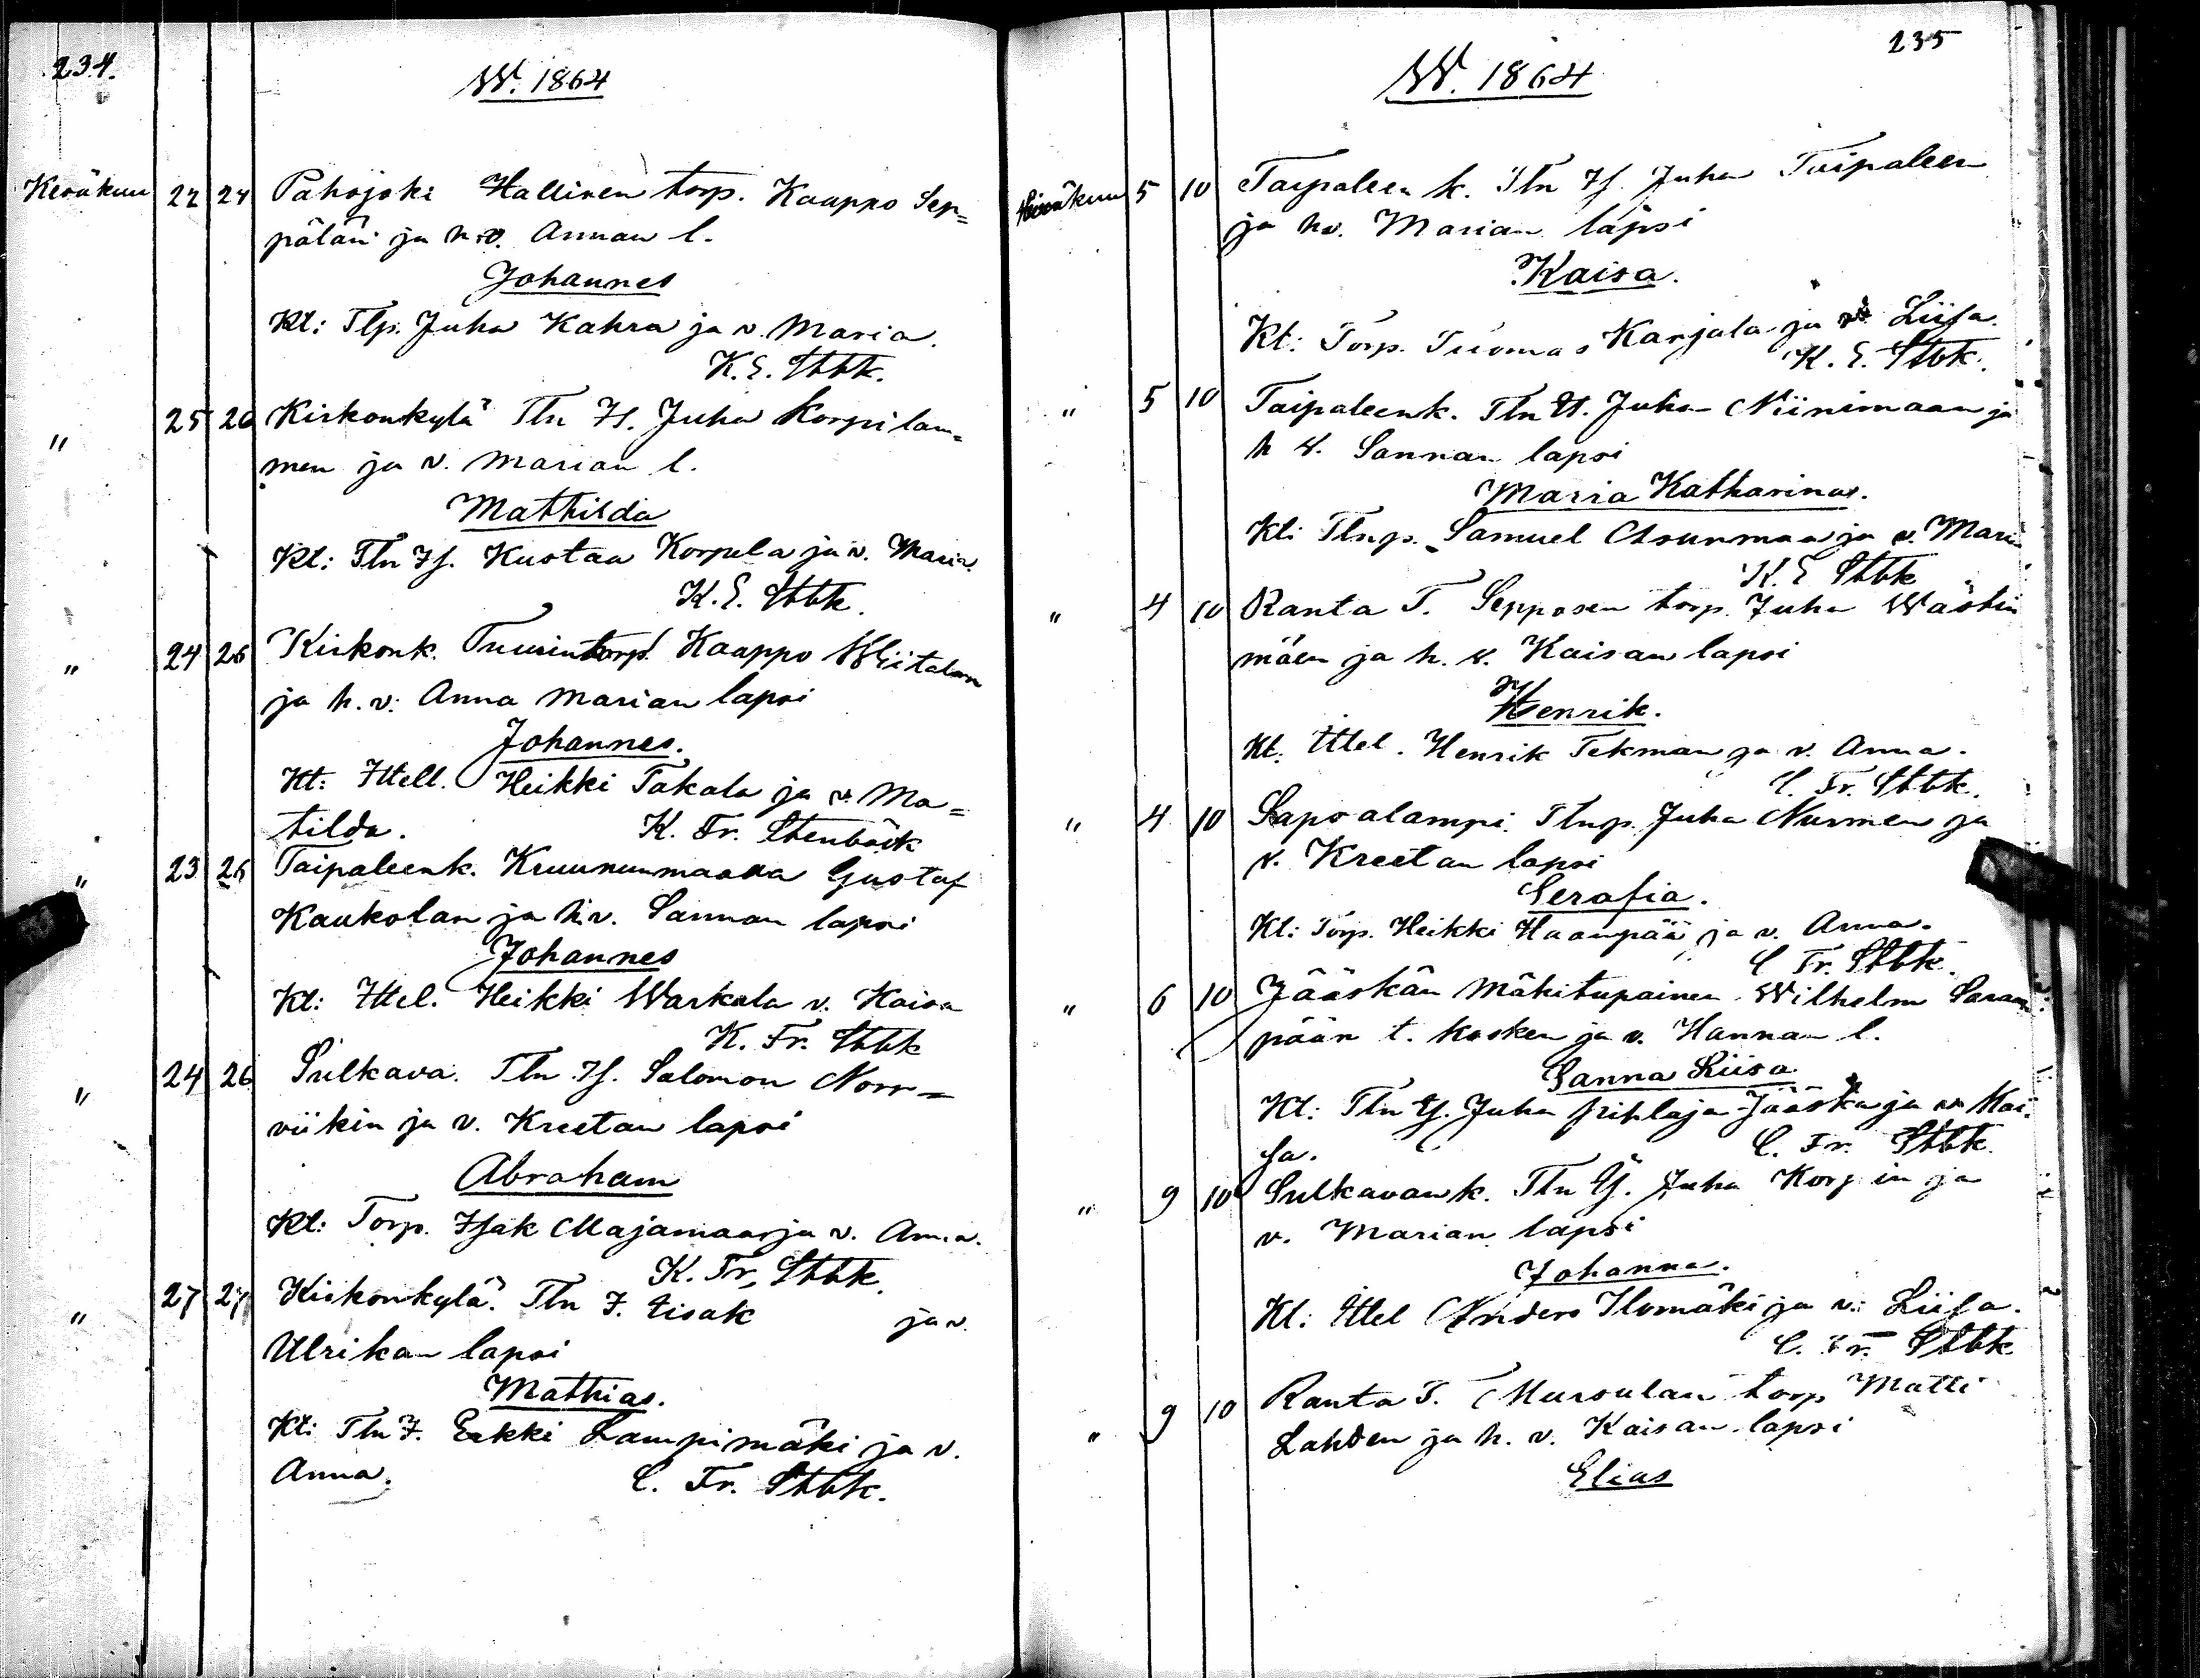 234.
W. 1864
Kesäkuu 22 24 Pahojoki Hallisen torp. Kaappo Sep=
pälän ja h.v. Annan l.
Johannes
Kt: Tlp. Juha Kahra ja v. Maria.
K.E. Stbk.
" 25 26 Kirkonkylä Tln Is. Juha Korpilam=
men ja v. Marian l.
Mathilda
Kt: Tln Is. Kustaa Korpela ja v. Maria.
K.E. Stbk.
" 24 26 Kirkonk. Tuurin torp. Kaappo Wiitalan
ja h.v. Anna Marian lapsi
Johannes.
Kt: Ittell. Heikki Takala ja v. Ma=
tilda. K. Fr. Stenbäck
" 23 26 Taipaleenk. Kruununmaata Gustaf
Kaukolan ja h.v. Sannan lapsi
Johannes
Kt: Ittel. Heikki Warkala v. Kaisa
K. Fr. Stbk
" 24 26 Sulkava. Tln Is. Salomon Norr=
viikin ja v. Kreetan lapsi
Abraham
Kt: Torp. Isak Majamaa ja v. Anna.
K. Fr. Stbk.
" 27 27 Kirkonkylä. Tln I. Eisak ja v.
Ulrikan lapsi
Mathias.
Kt: Tln I. Erkki Lampimäki ja v.
Anna. C. Fr. Stbk.
235
W. 1864
Heinäkuu 5 10 Taipaleen k. Tln Is. Juha Taipaleen
ja hv. Marian lapsi
Kaisa.
Kt: Torp. Tuomas Karjala ja v. Liisa.
K. E. Stbk.
" 5 10 Taipaleenk. Tln It. Juha Niinimaan ja
h v. Sannan lapsi
Maria Katharina.
Kt: Tlnp. Samuel Asunmaa ja v. Maria
K. E Stbk
" 4 10 Ranta T. Sepposen torp. Juha Wästin
mäen ja h. v. Kaisan lapsi
Henrik.
Kt. Ittel. Henrik Tekman ja v. Anna.
C. Fr. Stbk.
" 4 10 Sapsalampi. Tlnp. Juha Nurmen ja
v. Kreetan lapsi
Serafia.
Kt: Torp. Heikki Haanpää ja v. Anna.
C Fr. Stbk.
" 6 10 Jääskän Mäkitupainen Wilhelm Saran
pään t. Kosken ja v. Hannan l.
Sanna Liisa
Kt: Tln Is. Juha Pihlaja-Jääskä ja v. Kai=
sa. C. Fr. Stbk.
" 9 10 Sulkavank. Tln Is. Juha Korpin ja
v. Marian lapsi
Johanna.
Kt: Ittel Anders Ilomäki ja v: Liisa.
C. Fr. Stbk
" 9 10 Ranta T. Mursulan torp Matti
Lahden ja h. v. Kaisan lapsi
Elias